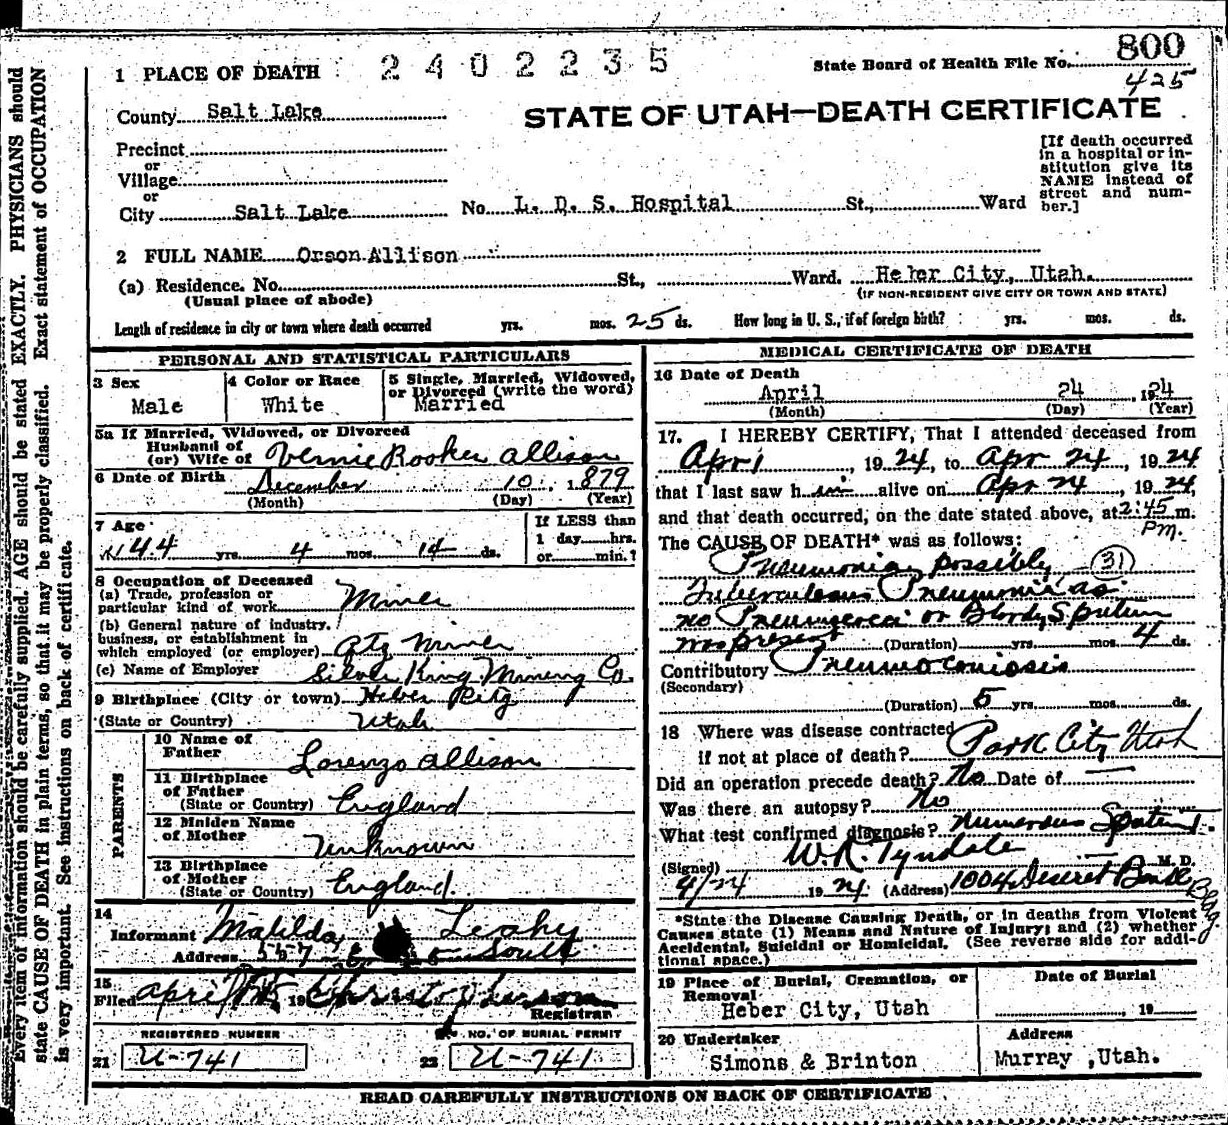 800
2402235
State Board of Health File No.
425
1 PLACE OF DEATH
County Salt Lake
STATE OF UTAH—DEATH CERTIFICATE
Precinct
or
Village
or
City Salt Lake No. L. D. S. Hospital St., Ward
[If death occurred in a hospital or institution give its NAME instead of street and number.]
2 FULL NAME Orson Allison
(a) Residence. No. St., Ward. Heber City, Utah.
(Usual place of abode) (IF NON-RESIDENT GIVE CITY OR TOWN AND STATE)
Length of residence in city or town where death occurred yrs. mos. 25 ds. How long in U. S., if of foreign birth? yrs. mos. ds.
PERSONAL AND STATISTICAL PARTICULARS
3 Sex
Male
4 Color or Race
White
5 Single, Married, Widowed,
or Divorced (write the word)
Married
5a If Married, Widowed, or Divorced
Husband of
(or) Wife of Vernie Rooker Allison
6 Date of Birth December 10, 1879
(Month) (Day) (Year)
7 Age
44 yrs. 4 mos. 14 ds.
If LESS than
1 day hrs.
or min.?
8 Occupation of Deceased
(a) Trade, profession or
particular kind of work Miner
(b) General nature of industry,
business, or establishment in
which employed (or employer) Miner
(c) Name of Employer Silver King Mining Co.
9 Birthplace (City or town) Heber City
(State or Country) Utah
PARENTS
10 Name of
Father Lorenzo Allison
11 Birthplace
of Father
(State or Country) England
12 Maiden Name
of Mother Unknown
13 Birthplace
of Mother
(State or Country) England.
14
Informant Matilda Leahy
Address 557 E South
15
Filed April 19
Registrar
REGISTERED NUMBER
21 U-741
NO. OF BURIAL PERMIT
22 U-741
MEDICAL CERTIFICATE OF DEATH
16 Date of Death
April 24, 1924
(Month) (Day) (Year)
17. I HEREBY CERTIFY, That I attended deceased from
Apr 1, 1924, to Apr 24, 1924
that I last saw him alive on Apr 24, 1924,
and that death occurred, on the date stated above, at 2:45 m.
Pm.
The CAUSE OF DEATH* was as follows:
Pneumonia, possibly (31)
Tuberculous Pneumonia as
no Pneumococci or Bloody Sputum
was present (Duration) yrs. mos. 4 ds.
Contributory Pneumoconiosis
(Secondary)
(Duration) 5 yrs. mos. ds.
18 Where was disease contracted
if not at place of death? Park City Utah
Did an operation precede death? No Date of —
Was there an autopsy? No
What test confirmed diagnosis? Numerous Sputum.
(Signed) W. R. Tyndale M. D.
4/24 1924 (Address) 1004 Deseret Bank Bldg
*State the Disease Causing Death, or in deaths from Violent
Causes state (1) Means and Nature of Injury; and (2) whether
Accidental, Suicidal or Homicidal. (See reverse side for additional space.)
19 Place of Burial, Cremation, or
Removal
Heber City, Utah
Date of Burial
, 19
20 Undertaker
Simons & Brinton
Address
Murray, Utah.
READ CAREFULLY INSTRUCTIONS ON BACK OF CERTIFICATE
Every item of information should be carefully supplied. AGE should be stated EXACTLY. PHYSICIANS should
state CAUSE OF DEATH in plain terms, so that it may be properly classified. Exact statement of OCCUPATION
is very important. See instructions on back of certificate.